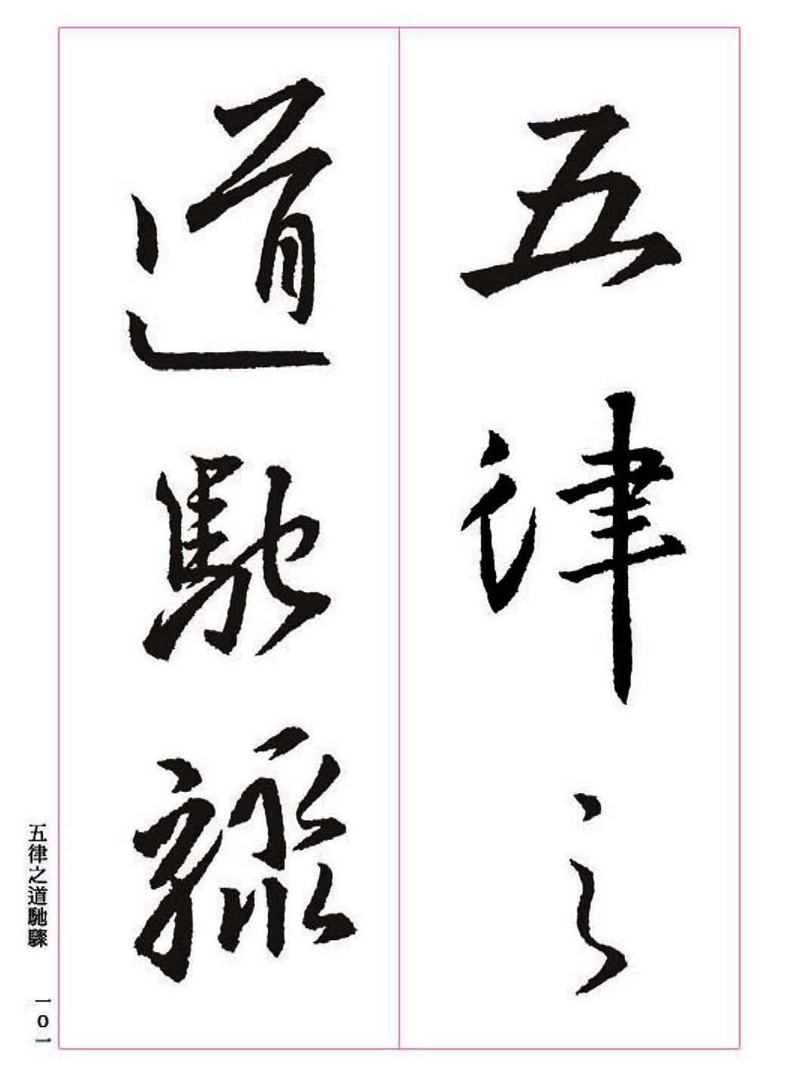 五律之
道馳驟
五律之道馳驟
一〇一